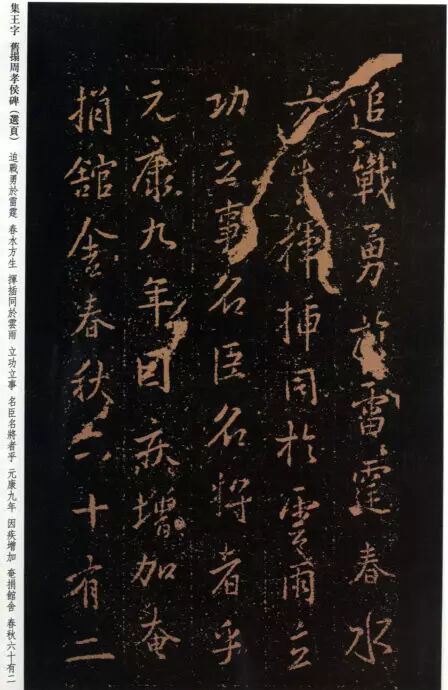 追戰勇於雷霆春水
方生揮插同於雲雨立
功立事名臣名將者乎
元康九年因疾增加奄
捐館舍春秋六十有二
集王字 舊搨周孝侯碑（選頁） 追戰勇於雷霆 春水方生 揮插同於雲雨 立功立事 名臣名將者乎 元康九年 因疾增加 奄捐館舍 春秋六十有二